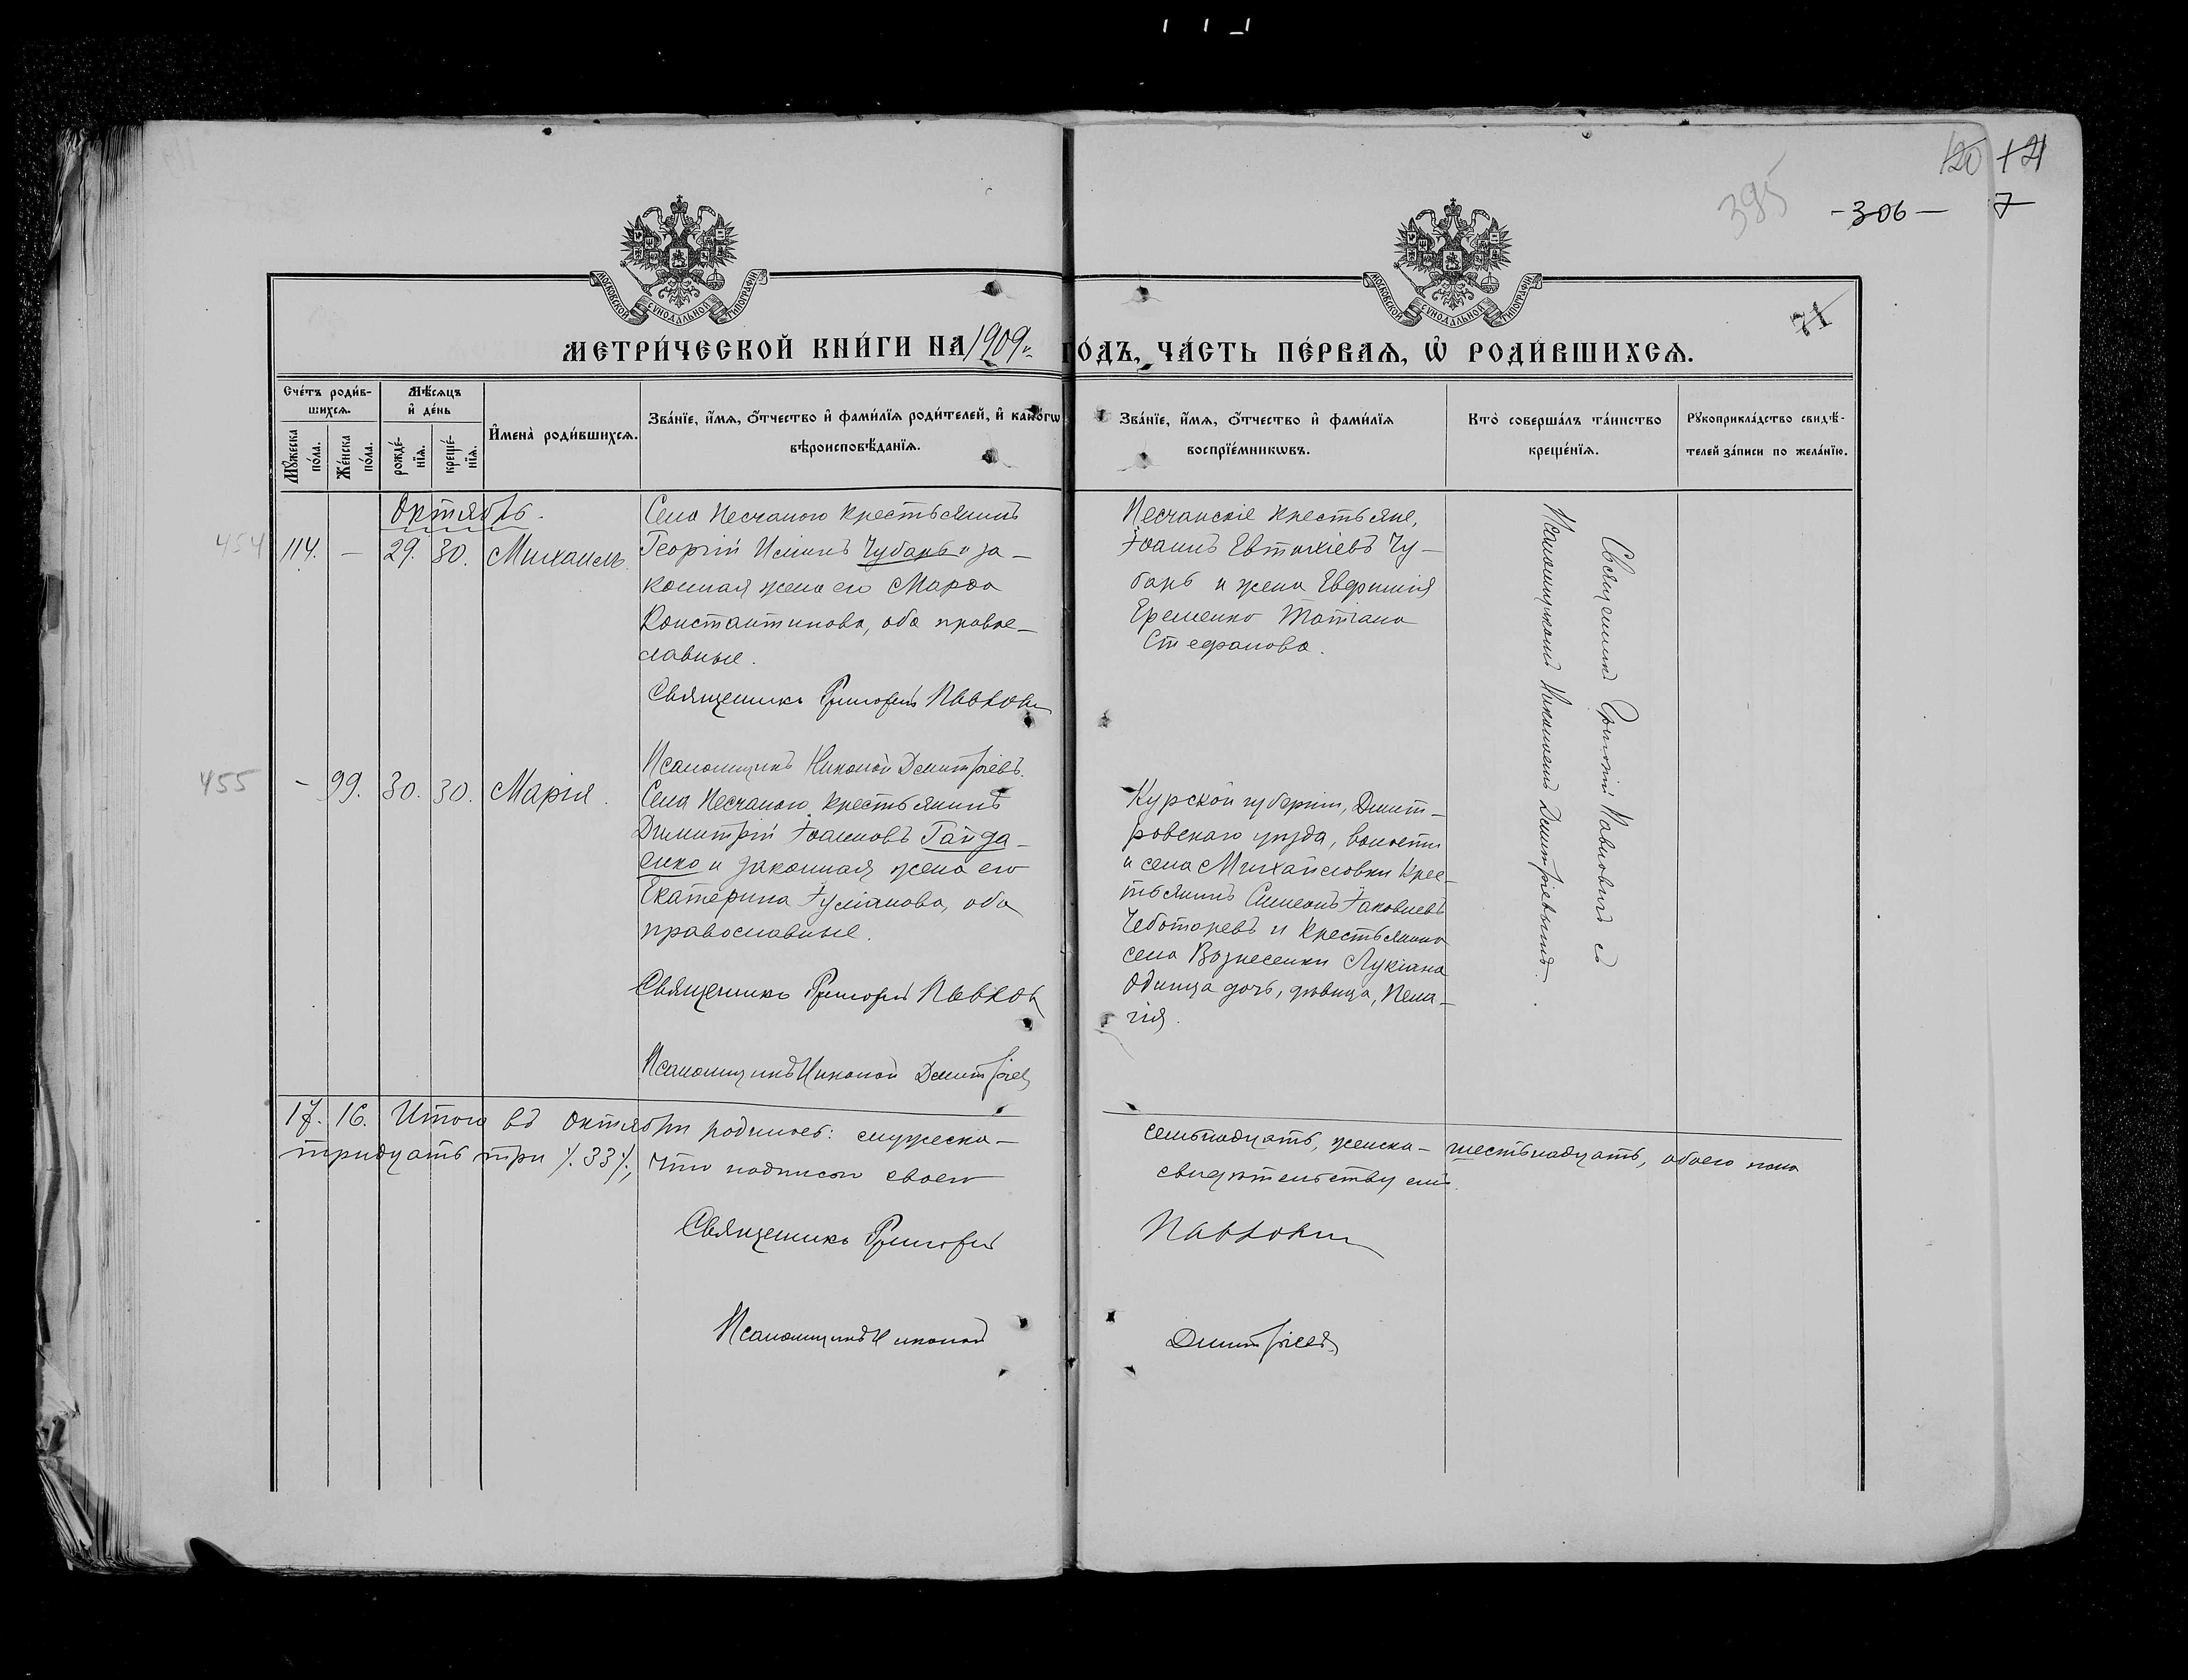 120 121
395 -306- 7
71
МОСКОВСКОЙ СѴНОДАЛЬНОЙ ТИПОГРАФІИ
МОСКОВСКОЙ СѴНОДАЛЬНОЙ ТИПОГРАФІИ
МЕТРИ́ЧЕСКОЙ КНИ́ГИ НА 1909 г. ГО́ДЪ, ЧА́СТЬ ПЕ́РВАѦ, Ѡ҆ РОДИ́ВШИХСѦ.
Сче́тъ роди́в-
шихсѧ.
Мѣ́сѧцъ
и҆ де́нь
Мꙋ́жеска по́ла.
Же́нска по́ла.
рожде́-
нїѧ.
креще́-
нїѧ.
И҆мена̀ роди́вшихсѧ.
Зва́нїе, и҆́мѧ, ѻ҆́тчество и҆ фами́лїѧ роди́телей, и҆ како́гѡ
вѣроисповѣ́данїѧ.
Зва́нїе, и҆́мѧ, ѻ҆́тчество и҆ фами́лїѧ
воспрїе́мникѡвъ.
Кто̀ соверша́лъ та́инство
креще́нїѧ.
Рꙋкоприкла́дство свидѣ́-
телей за́писи по жела́нїю.
Октябрь.
454 114. — 29. 30. Михаилъ.
Села Песчаного крестьянинъ
Георгій Чубарь и за-
конная жена его Марѳа
Константинова, оба право-
славные.
Священникъ Григорій Павлович
Псаломщикъ Никонъ Дмитріевъ.
Песчанскіе крестьяне,
Іоаннъ Евтихіевъ Чу-
барь и жена Евфимія
Еременко Татіана
Стефанова.
Священникъ Григорій Павловичъ съ
Псаломщикомъ Дмитріевымъ.
455 - 99. 30. 30. Марія.
Села Песчаного крестьянинъ
Димитрій Іоанновъ Гайда-
енко и законная жена его
Екатерина Іуліанова, оба
православные.
Священникъ Григорій Павлов
Псаломщикъ Дмитріев
Курской губерніи, Дмит-
ровскаго уѣзда, волости
и села Михайловки крес-
тьянинъ Симеонъ Іаковлевъ
Чеботаревъ и крестьянина
села Вознесенки Лукіана
Одинца дочь, дѣвица, Пела-
гія.
17. 16. Итого въ Октябрѣ родилось: мужеска — семьнадцать, женска — шестьнадцать, обоего пола
тридцать три /. 33 /., что подписью своею свидѣтельствуемъ.
Священникъ Григорій Павлович
Псаломщикъ Дмитріевъ